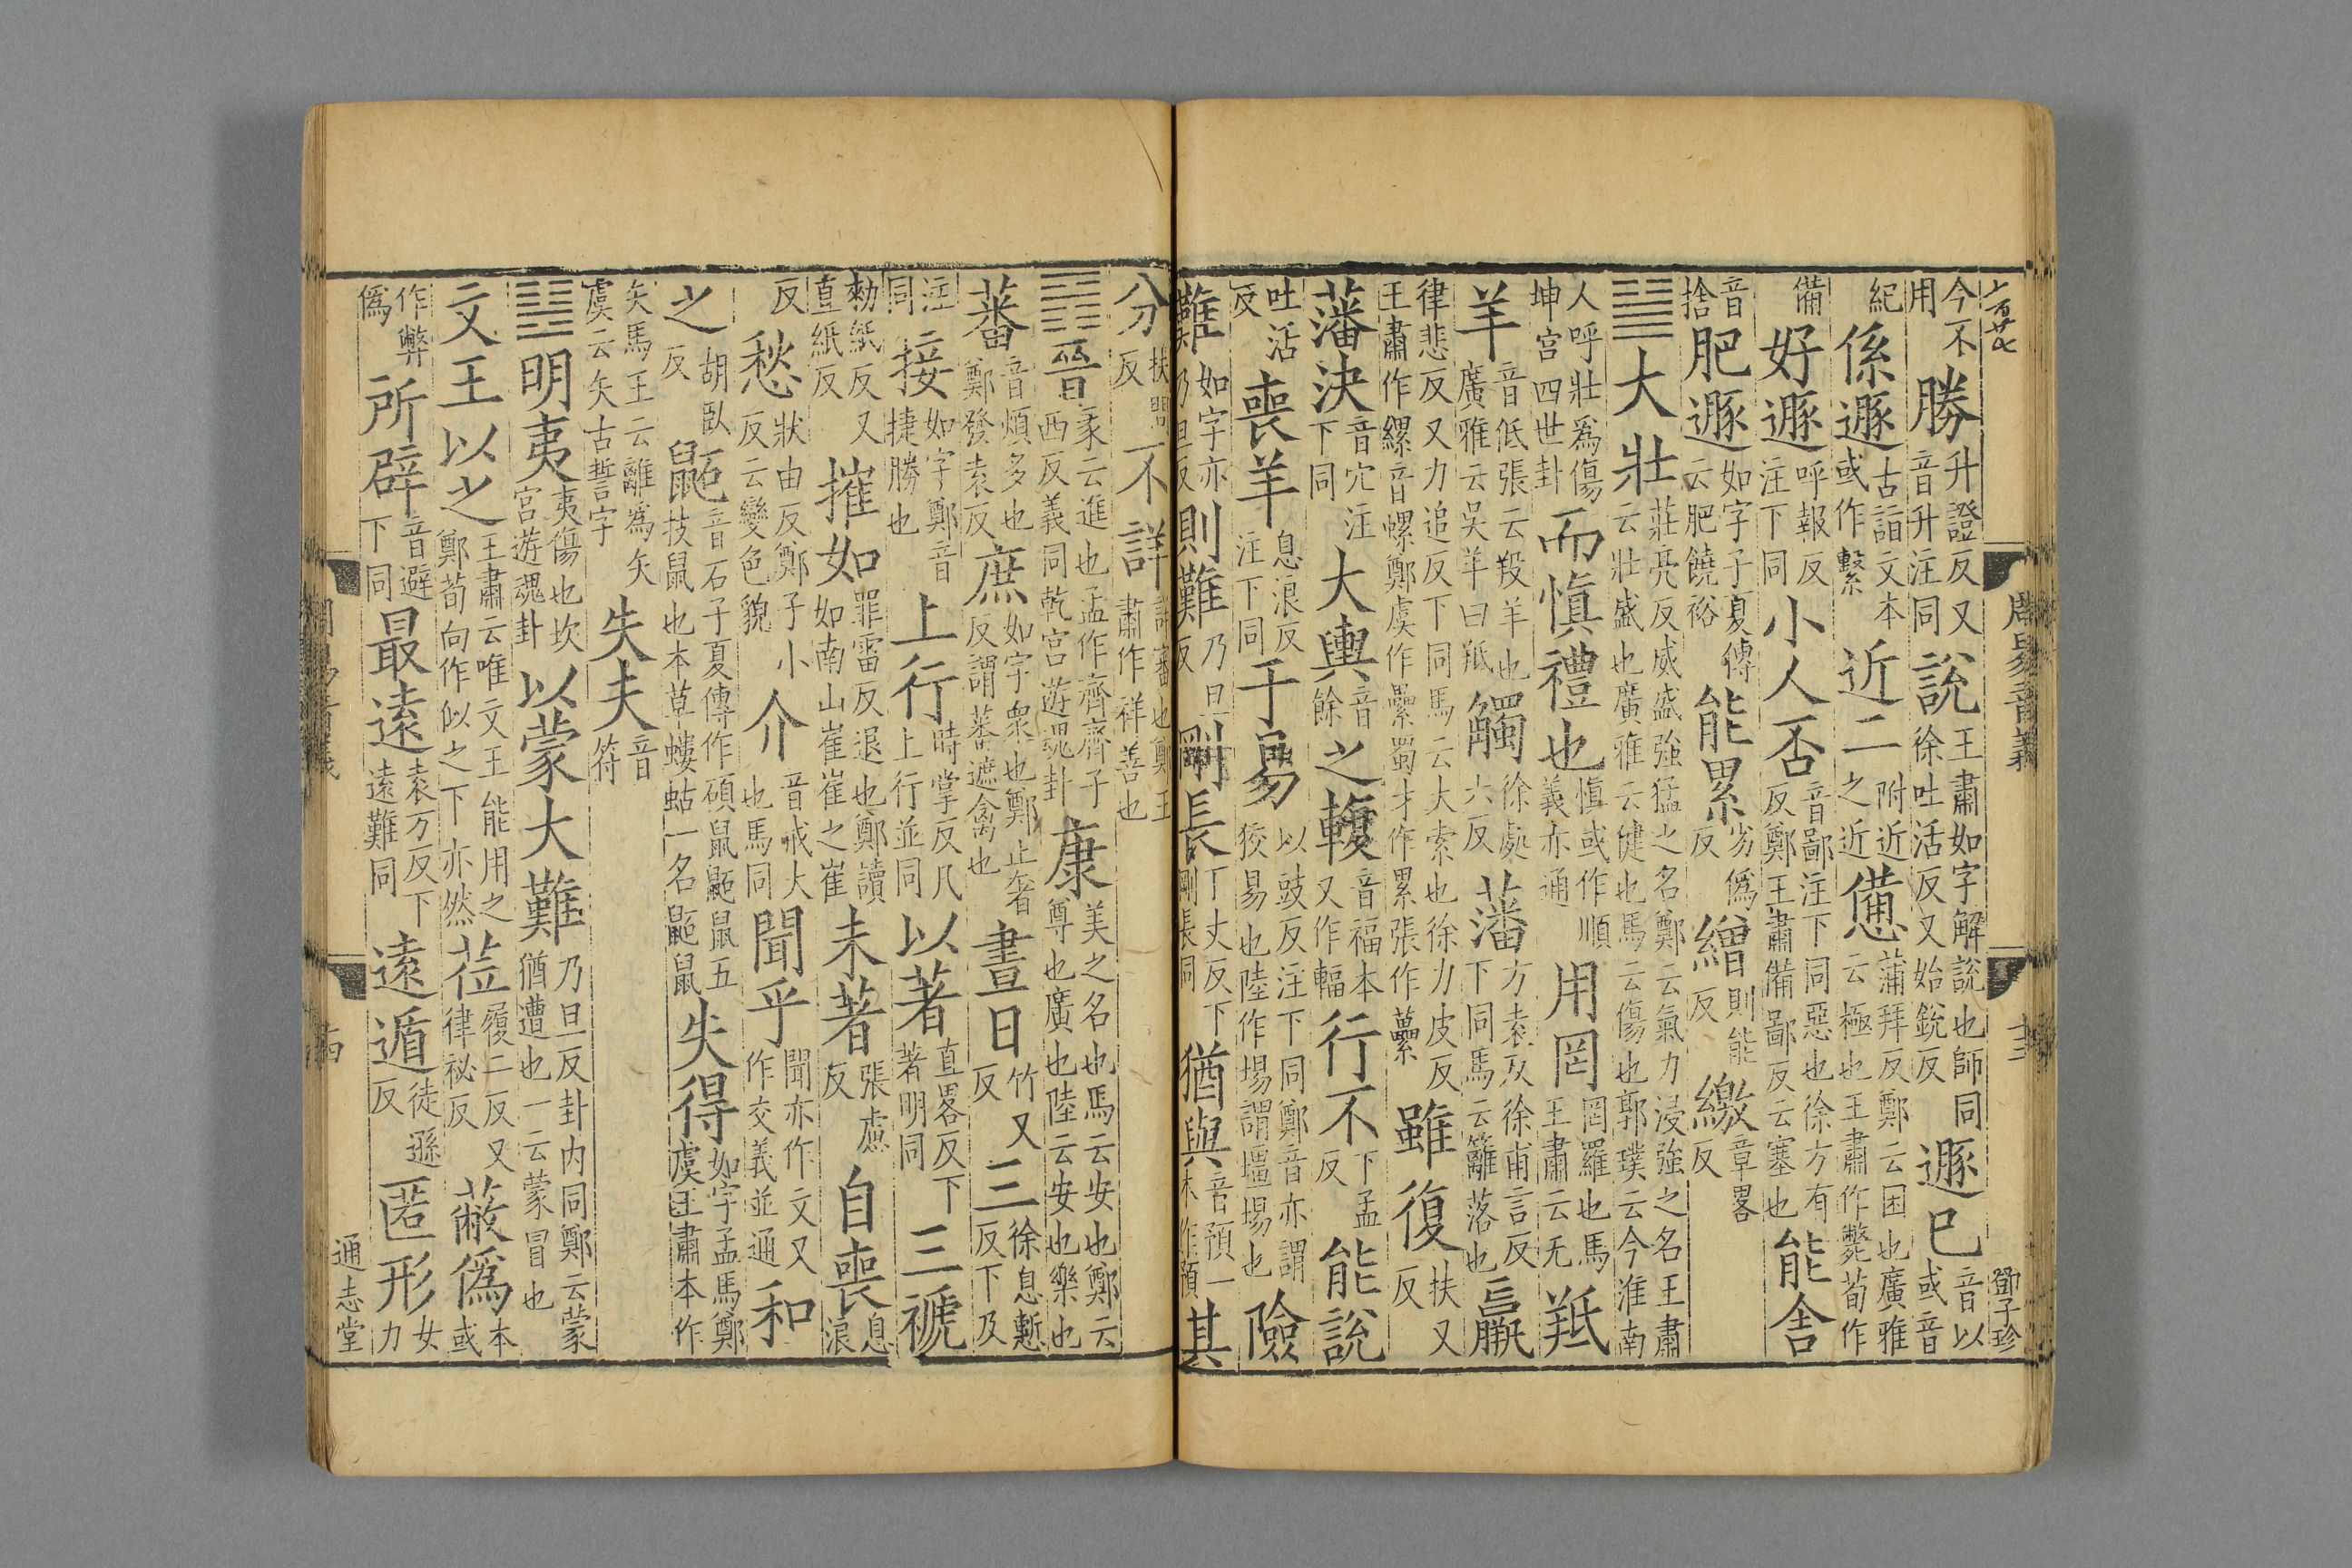 六百廿七 周易音義 十三 鄧子珍
今不用勝升證反又音升注同說王肅如字解說也師同徐吐活反又始銳反遯已音以或音
紀係遯古詣文本或作繫近二附近之近憊蒲拜反鄭云困也廣雅云極也王肅作斃荀作
備好遯呼報反注下同小人否音鄙注下同惡也徐方有反鄭王肅備鄙反云塞也能舍
音捨肥遯如字子夏傳云肥饒裕能累劣僞反繒則能反繳章畧反
䷡大壯莊亮反威盛強猛之名鄭云氣力浸強之名王肅云壯盛也廣雅云健也馬云傷也郭璞云今淮南
人呼壯爲傷坤宮四世卦而慎禮也慎或作順義亦通用罔罔羅也馬王肅云无羝
羊音低張云羖羊也廣雅云吳羊曰羝觸徐處六反藩方袁反徐甫言反下同馬云籬落也羸
律悲反又力追反下同馬云大索也徐力皮反王肅作縲音螺鄭虞作纍蜀才作累張作虆雖復扶又反
藩決音穴注下同大輿音餘之輹音福本又作輻行不下孟反能說
吐活反喪羊息浪反注下同于易以豉反注下同鄭音亦謂狡易也陸作埸謂壃埸也險
難如字亦乃旦反則難乃旦反剛長丁丈反下剛長同猶與音預一本作預其
分扶問反不詳詳審也鄭王肅作祥善也
䷢晉彖云進也孟作齊齊子西反義同乾宮遊魂卦康美之名也馬云安也鄭云尊也廣也陸云安也樂也
蕃音煩多也鄭發袁反庶如字衆也鄭止奢反謂蕃遮禽也晝日竹又反三徐息蹔反下及
注同接如字鄭音捷勝也上行時掌反凡上行並同以著直畧反下著明同三褫
勑紙反又直紙反摧如罪雷反退也鄭讀如南山崔崔之崔未著張慮反自喪息浪
反愁狀由反鄭子小反云變色貌介音戒大也馬同聞乎聞亦作文又作交義並通和
之胡臥反鼫音石子夏傳作碩鼠鼫鼠五技鼠也本草螻蛄一名鼫鼠失得如字孟馬鄭虞王肅本作
矢馬王云離爲矢虞云矢古誓字失夫音符
䷣明夷夷傷也坎宮遊魂卦以蒙大難乃旦反卦内同鄭云蒙猶遭也一云蒙冒也
文王以之王肅云唯文王能用之鄭荀向作似之下亦然莅履二反又律祕反蔽僞本或
作弊僞所辟音避下同最遠袁万反下遠難同遠遁徒遜反匿形女力
周易音義 十四 通志堂